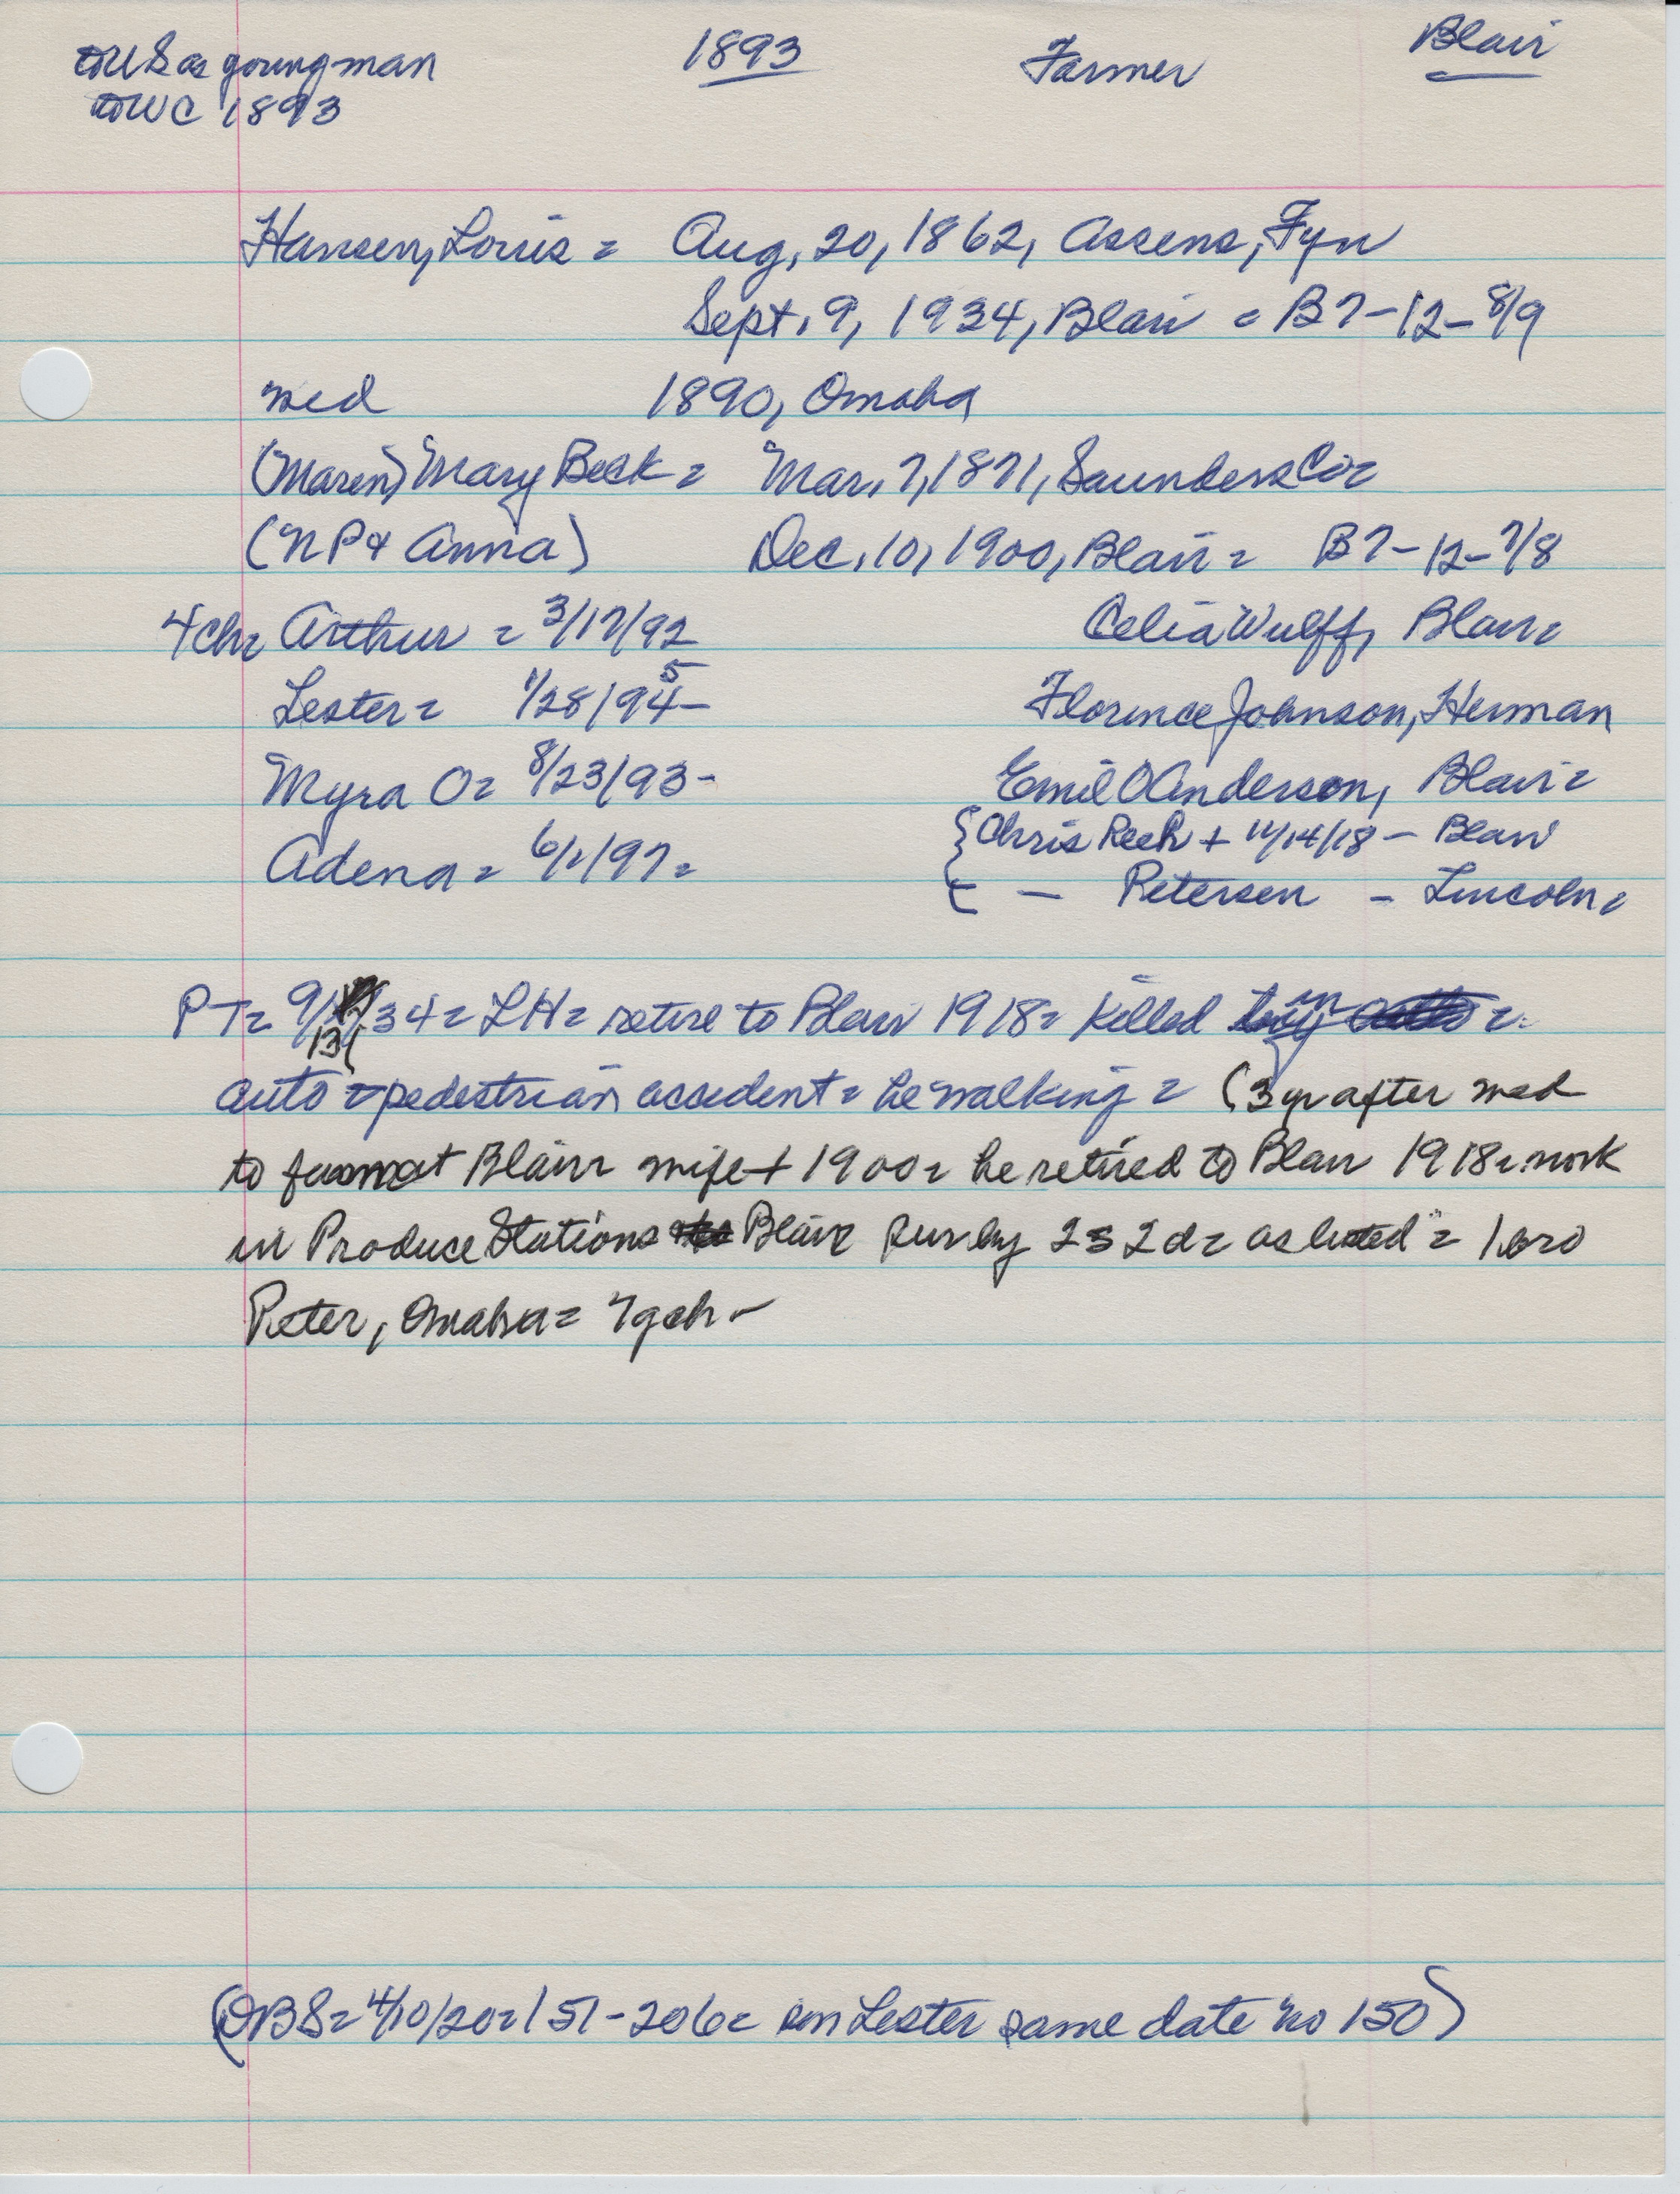 to US as young man 1893 Farmer Blair
to WC 1893
Hansen, Louis = Aug, 20, 1862, Assens, Fyn
Sept, 9, 1934, Blair = B7-12-8/9
med 1890, Omaha
(Maren) Mary Beck = Mar, 7, 1871, Saunders Co =
(NP & Anna) Dec, 10, 1900, Blair = B7-12-7/8
4 ch = Arthur = 3/17/92 Celia Wulff, Blair =
5
Lester = 1/28/94 - Florence Johnson, Herman
Myra O = 8/23/93 - Emil O Anderson, Blair =
{ Chris Reeh + 11/14/18 - Blair
Adena = 6/1/97 =
{ — Petersen - Lincoln =
PT = 9/13/34 = LH = retire to Blair 1918 = killed in =
auto = pedestrian accident = he walking = (3 yr after med
to farm at Blair = wife + 1900 = he retired to Blair 1918 = work
in Produce Stations Blair = surv by 2s 2d = as listed = 1 bro
Peter, Omaha = 7 gch -
(DBS = 4/10/20 = 151-206 = son Lester same date no 150)